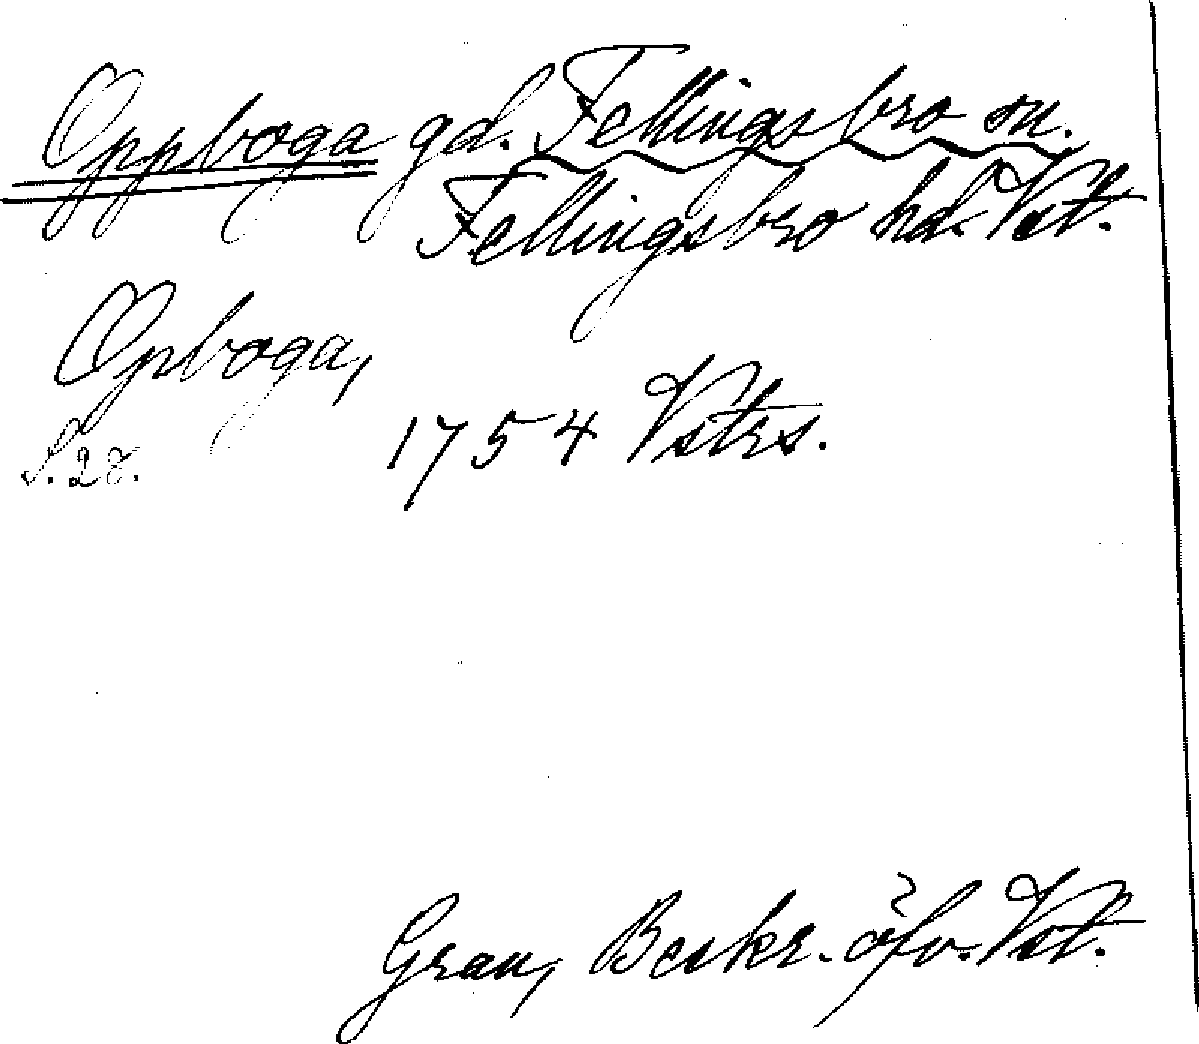 Oppboga gd. Fellingsbro sn.
Fellingsbro hd. Vstt.
Opboga,
S. 28. 1754 Vstrs.
Grau, Beskr. öfv. Vstt.